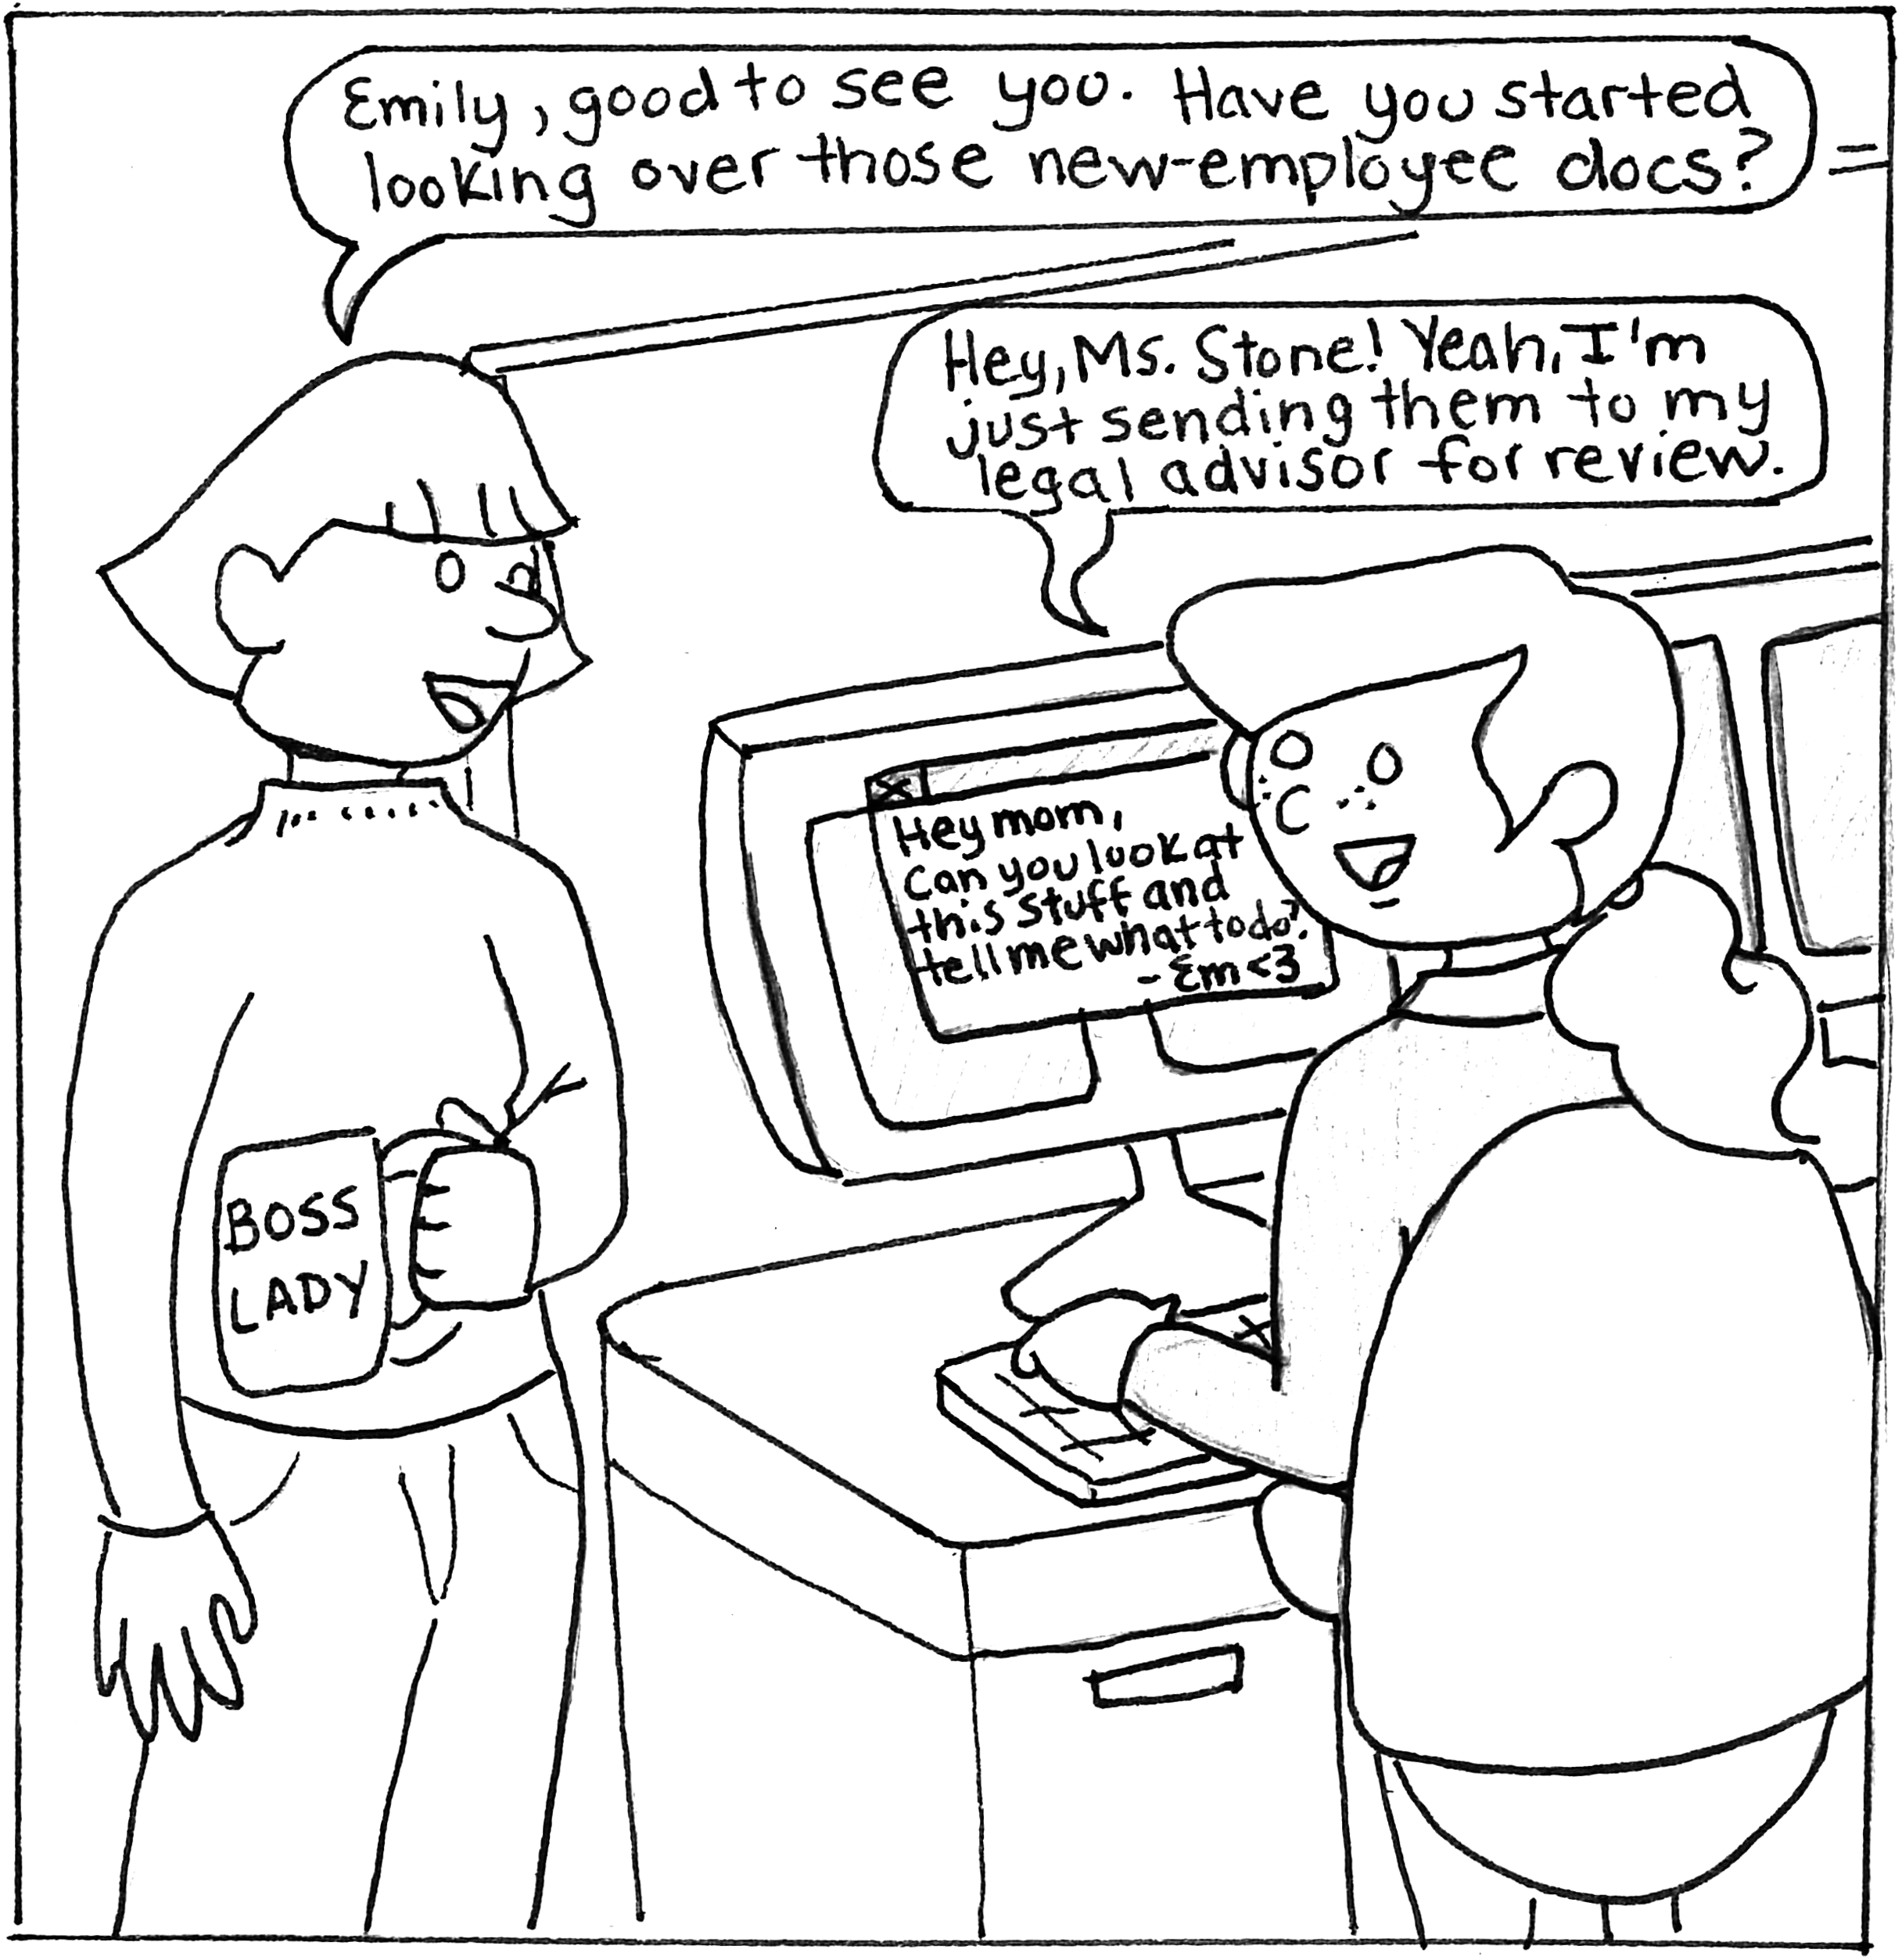 Emily, good to see you. Have you started
looking over those new-employee docs?
Hey, Ms. Stone! Yeah, I'm
just sending them to my
legal advisor for review.
Hey mom,
Can you look at
this stuff and
tell me what to do?
- Em <3
BOSS
LADY